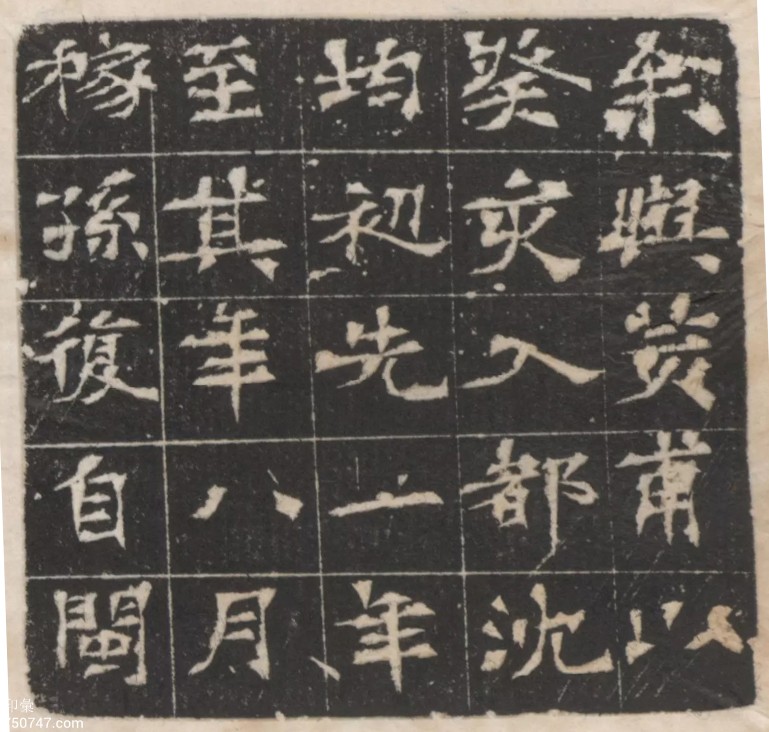 余與荄甫以
癸亥入都沈
均初先一年
至其年八月
稼孫復自閩
印彙
750747.com